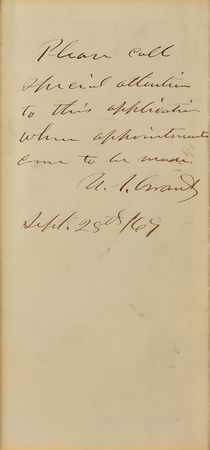 Please call
special attention
to this application
when appointments
come to be made.
U. S. Grant
Sept. 28th /69